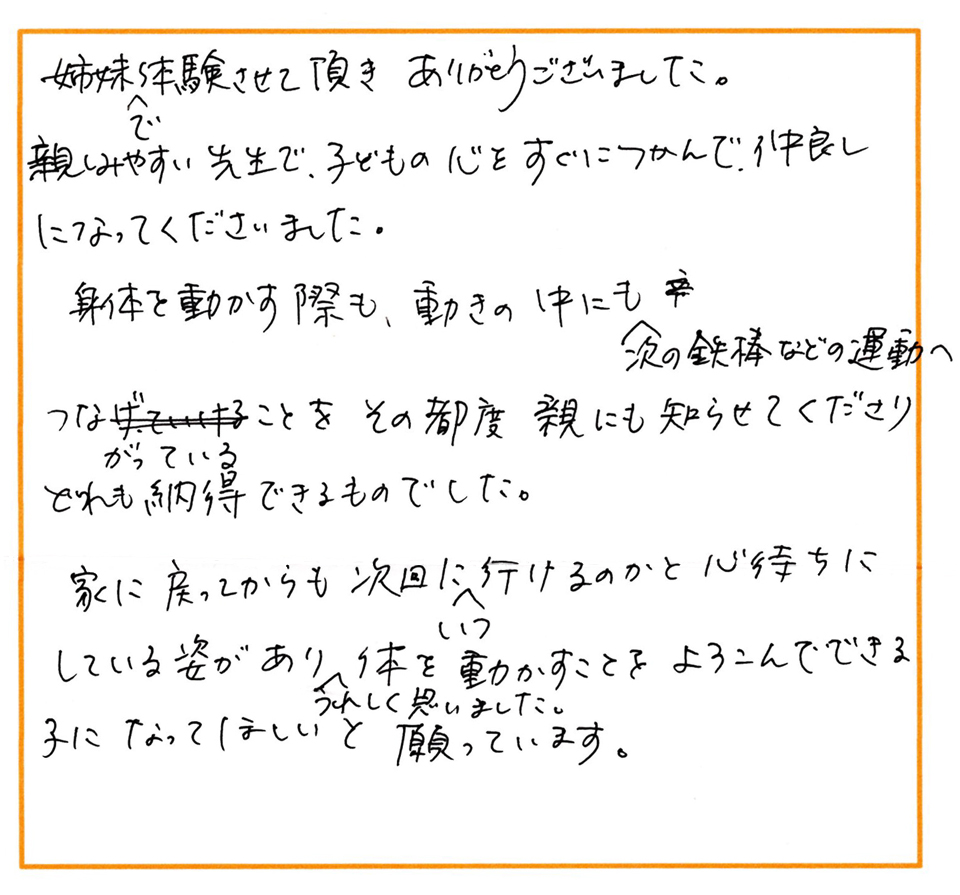 姉妹で体験させて頂き ありがとうございました。
親しみやすい先生で、子どもの心をすぐにつかんで、仲良し
になってくださいました。
身体を動かす際も、動きの中にも
次の鉄棒などの運動へ
つながっていることをその都度 親にも知らせてくださり
どれも納得できるものでした。
家に戻ってからも次回にいつ行けるのかと心待ちに
している姿があり うれしく思いました。体を動かすことをよろこんでできる
子になってほしいと願っています。